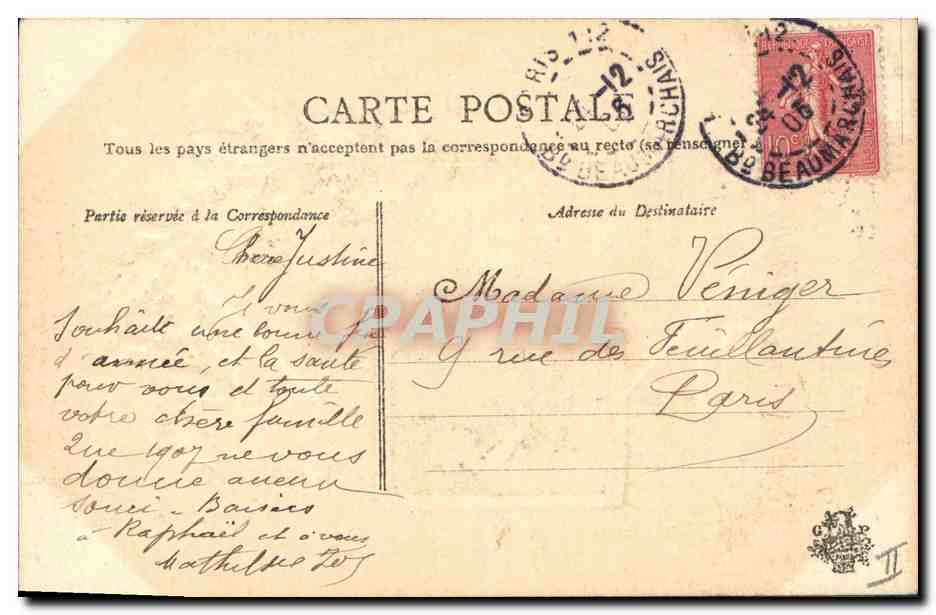 CARTE POSTALE
Tous les pays étrangers n'acceptent pas la correspondance au recto (se renseigner
Partie réservée à la Correspondance
Adresse du Destinataire
RIS 112
-12
06
Bd BEAUMARCHAIS
112
24 -12
06
Bd BEAUMARCHAIS
10c
Chère Justine
Je vous
Souhaite une bonne fin
d'année, et la santé
pour vous et toute
votre chère famille
Que 1907 ne vous
donne aucun
souci - Baisers
à Raphaël et à vous
Mathilde
Madame Véniger
9 rue des Feuillantines
Paris
CPAPHIL
G P
II